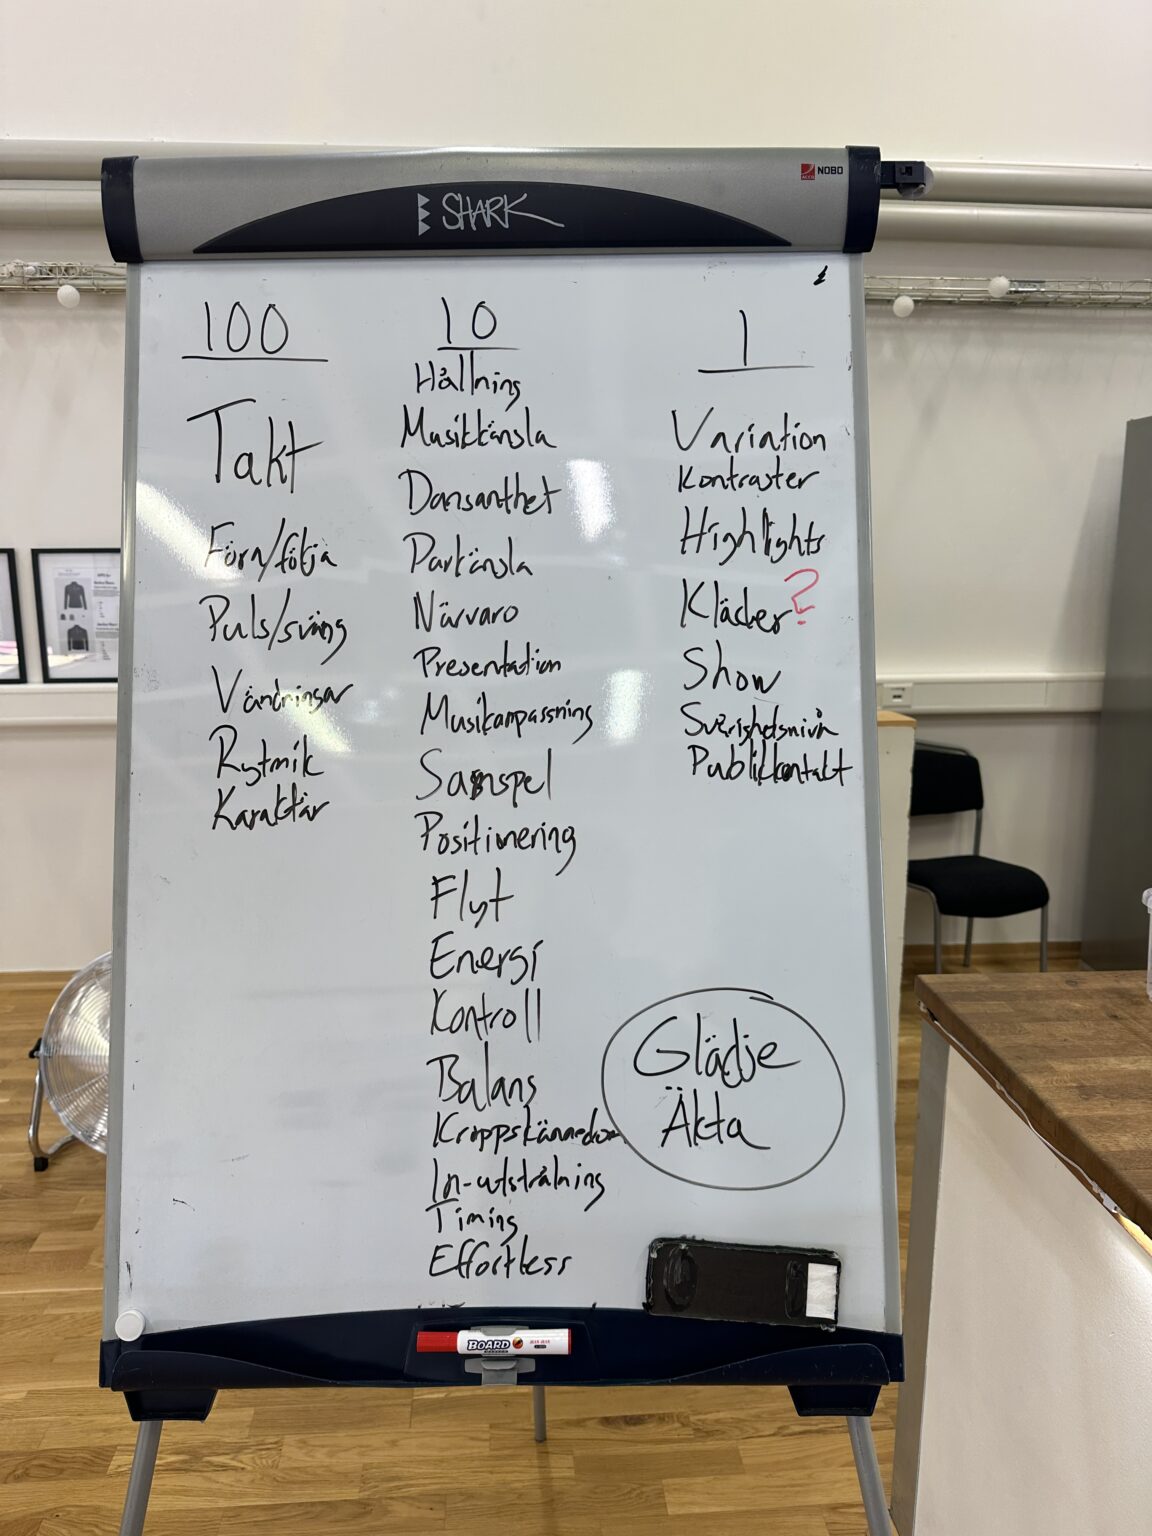 NOBO
SHARK
100
Takt
Föra/följa
Puls/sväng
Vändningar
Rytmik
Karaktär
10
Hållning
Musikkänsla
Dansanthet
Parkänsla
Närvaro
Presentation
Musikanpassning
Samspel
Positionering
Flyt
Energi
Kontroll
Balans
Kroppskännedom
In-utstrålning
Timing
Effortless
1
Variation
Kontraster
Highlights
Kläder?
Show
Svårighetsnivå
Publikkontakt
Glädje
Äkta
BOARD